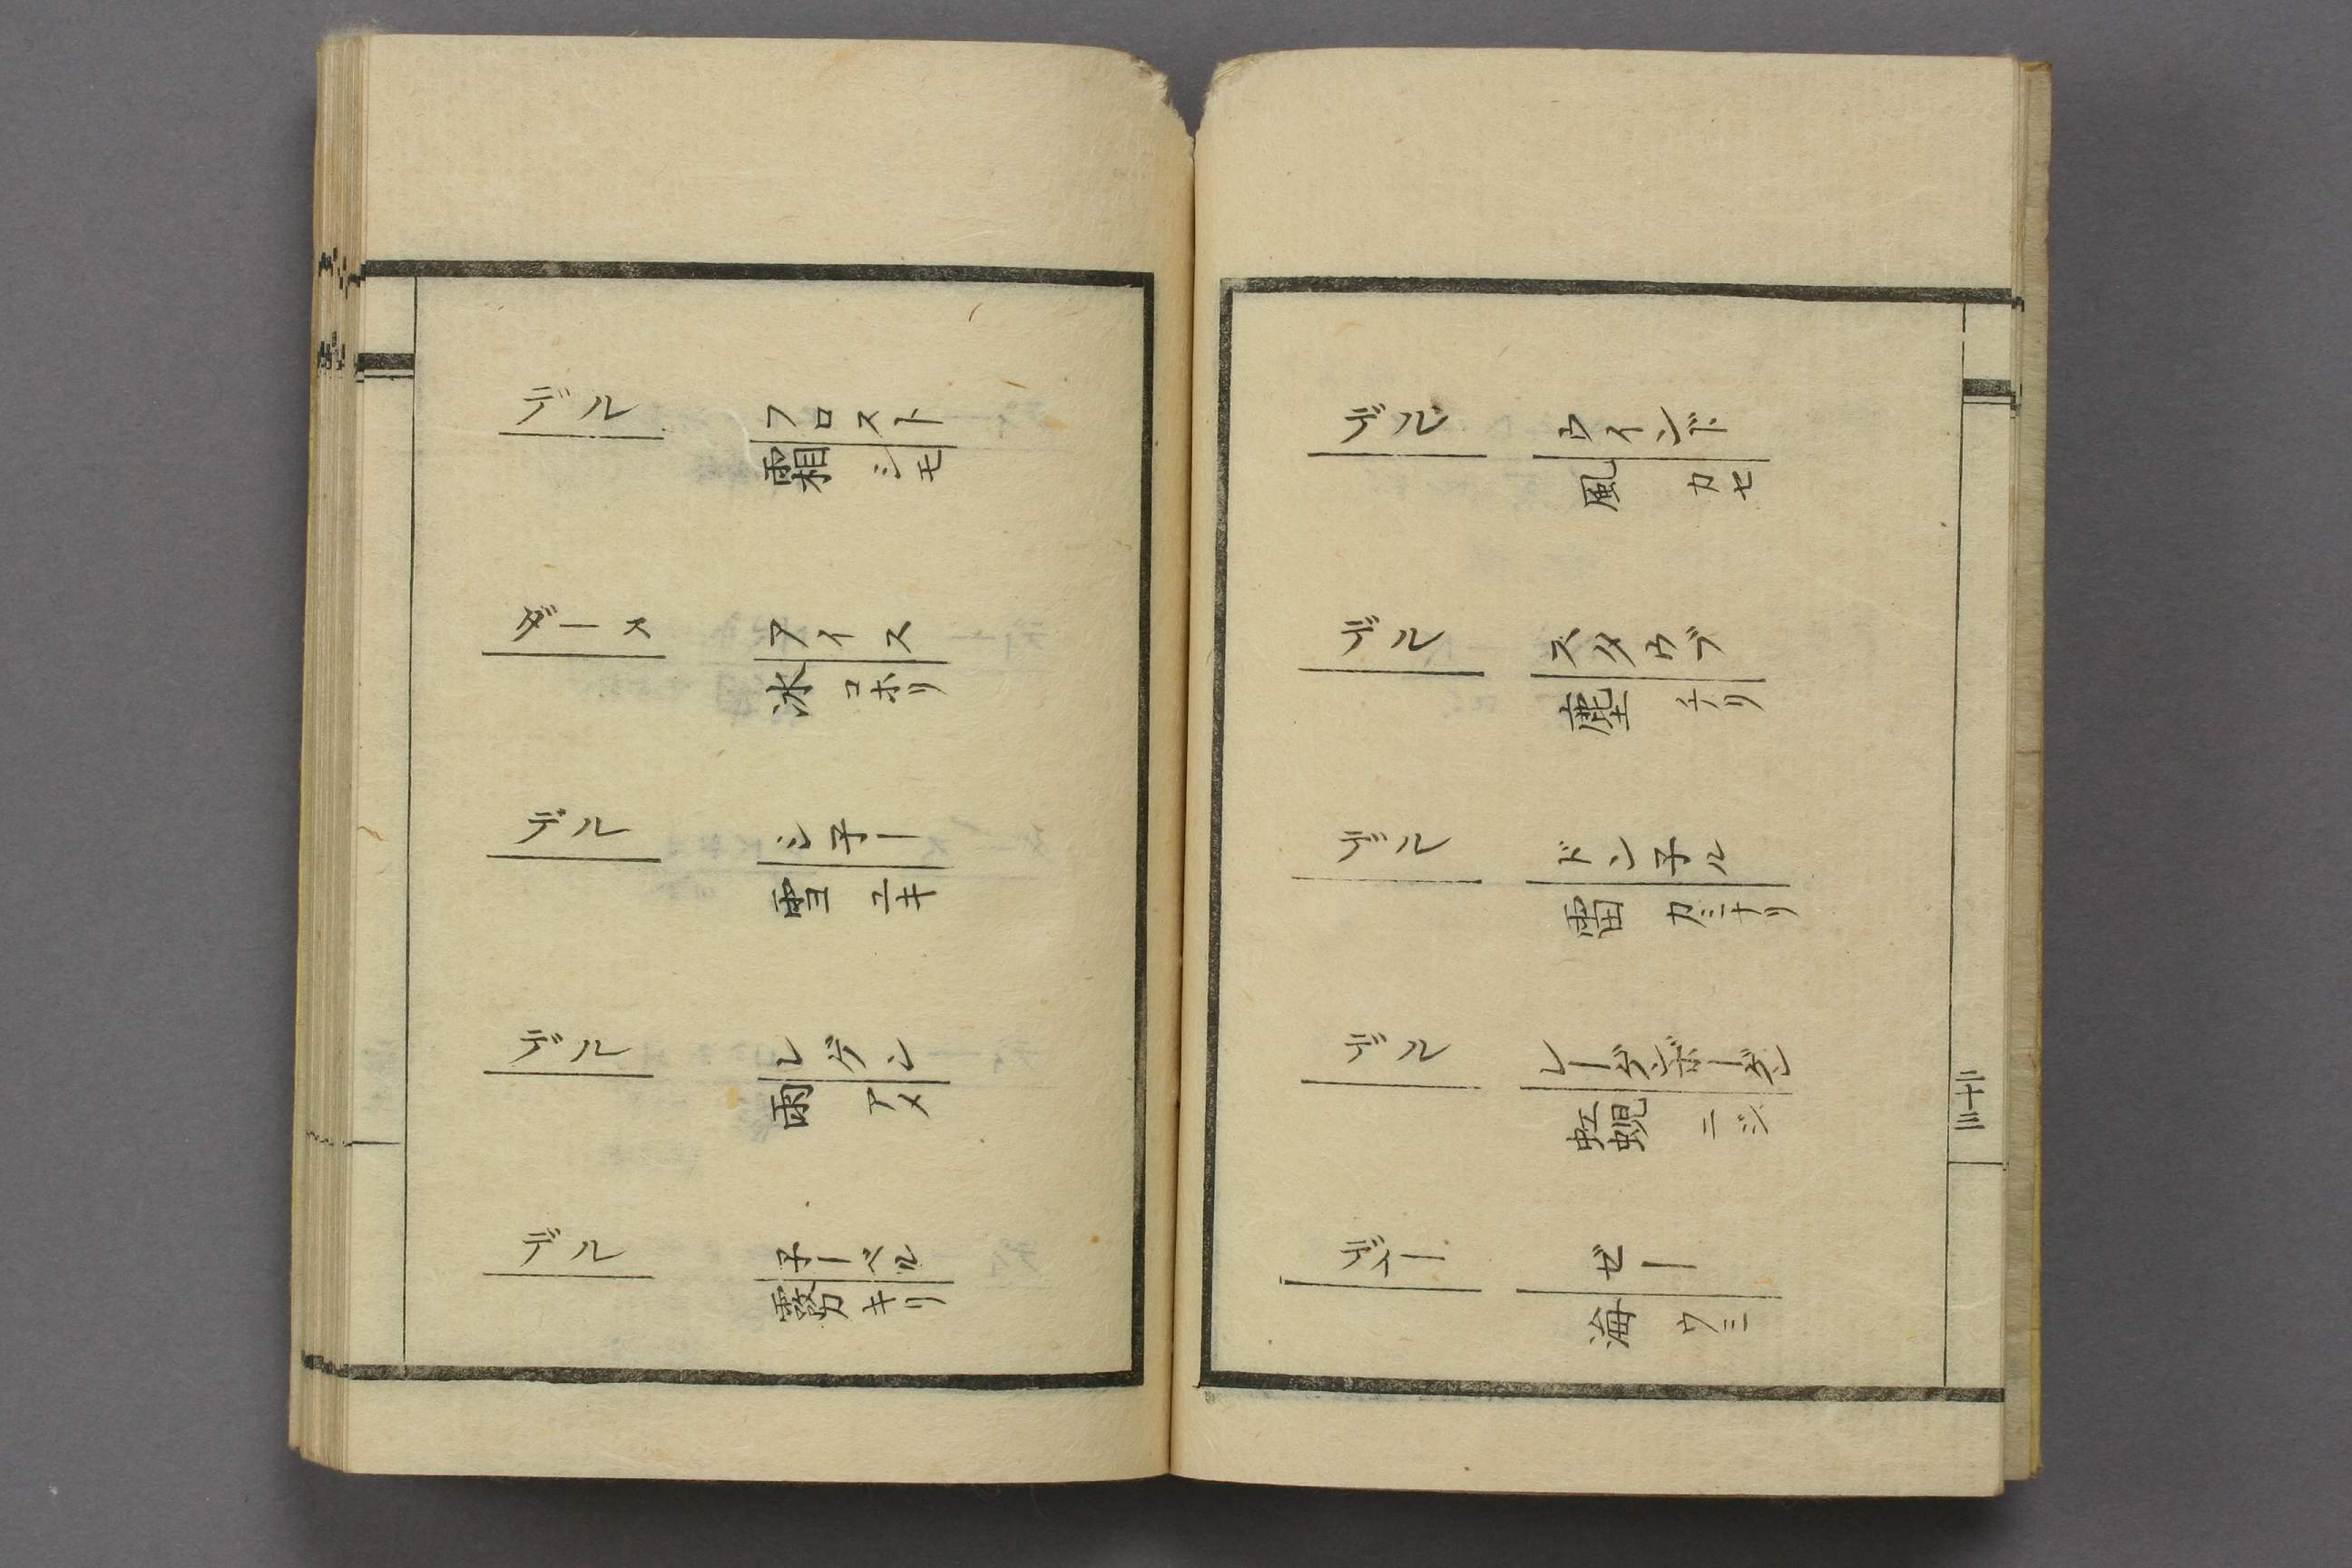 デル フロスト
霜 シモ
ダース アイス
冰 コホリ
デル シ子ー
雪 ユキ
デル レゲン
雨 アメ
デル 子ーベル
霧 キリ
デル ウィンド
風 カセ
デル スタウブ
塵 チリ
デル ドン子ル
雷 カミナリ
デル レーゲンボーゲン
虹蜺 ニジ
ディー ゼー
海 ウミ
二十三